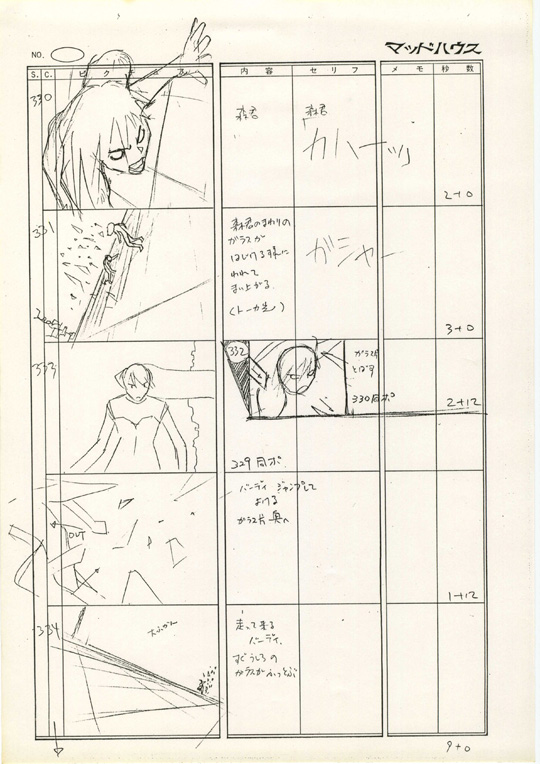 NO.
マッドハウス
S. C. ピクチュア 内容 セリフ メモ 秒数
330
森君
森君
「カハーッ」
2+0
331
森君のまわりの
ガラスが
はじける様に
われて
まい上がる
ガシャー
3+0
332
ガラス片
とばす
330同ポ
333
2+12
329同ポ
バーディ ジャンプして
よける
ガラス片 奥へ
OUT
1+12
334
大ふかん
走って来る
バーディ、
すぐうしろの
ガラスがふっとぶ
9+0